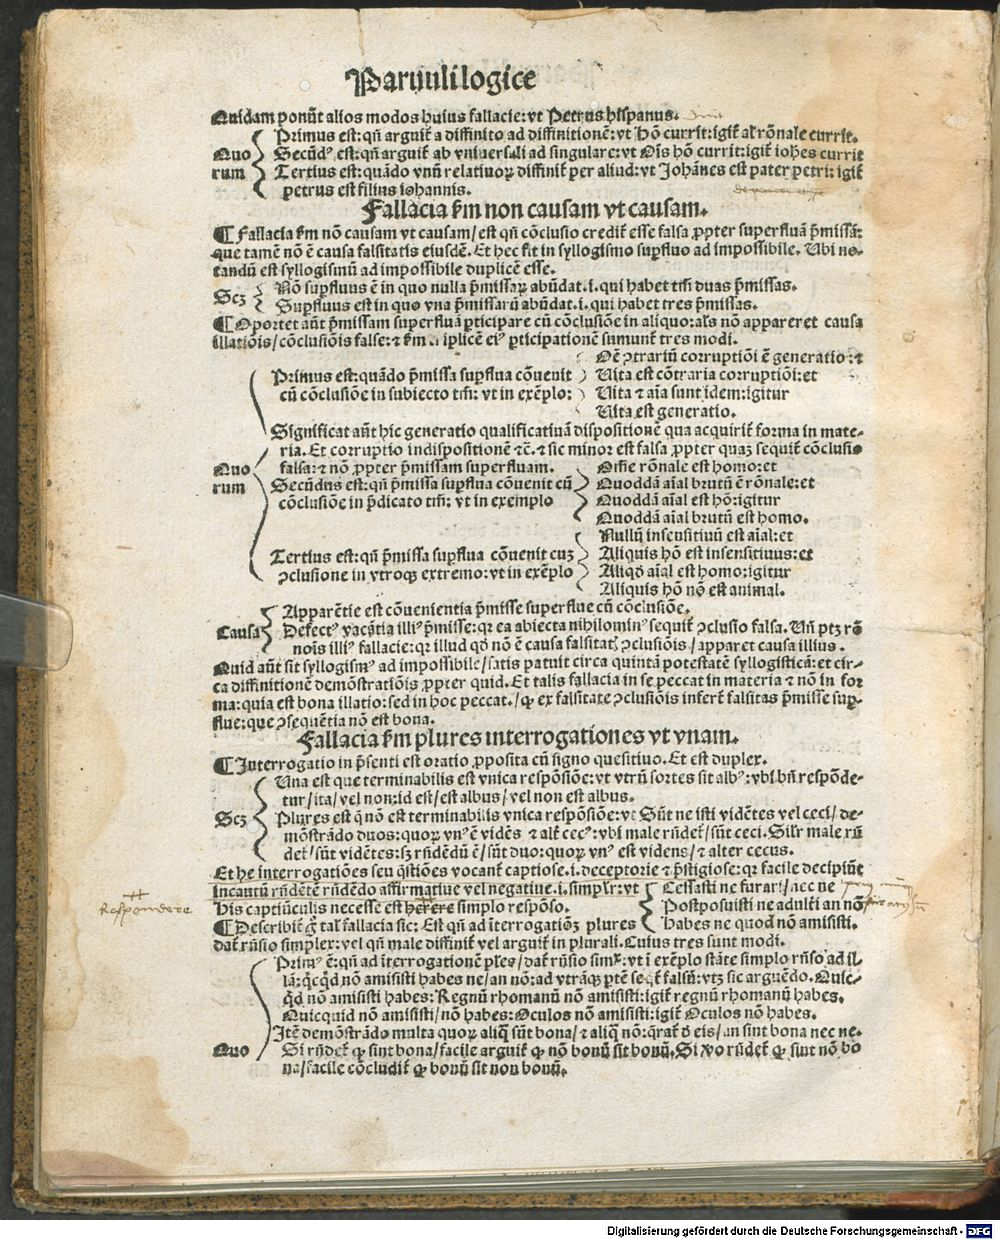 Paruuli logice
Quidam ponūt alios modos huius fallacie: vt Petrus hispanus.
Primus est: qn̄ arguit̄ a diffinito ad diffinitionē: vt Hō currit: igit̄ aīal rōnale currit.
Quo Secūdꝰ est: qn̄ arguit̄ ab vniuersali ad singulare: vt Oīs hō currit: igit̄ iohēs currit
rum Tertius est: quādo vnū relatiuoꝝ diffinit̄ per aliud: vt Johānes est pater petri: igit̄
petrus est filius iohannis.
Fallacia ẜm non causam vt causam.
¶ Fallacia ẜm nō causam vt causam/ est qn̄ cōclusio credit̄ esse falsa ꝓpter superfluā p̄missā:
que tamē nō ē causa falsitatis eiusdē. Et hec fit in syllogismo suꝑfluo ad impossibile. Ubi no-
tandū est syllogismū ad impossibile duplicē esse.
Scꝫ Nō suꝑfluus ē in quo nulla p̄missaꝝ abūdat .i. qui habet tm̄ duas p̄missas.
Suꝑfluus est in quo vna p̄missarū abūdat .i. qui habet tres p̄missas.
¶ Oportet aūt p̄missam superfluā ꝑticipare cū cōclusiōe in aliquo: als nō appareret causa
illatiōis/ cōclusiōis false: ⁊ ẜm triplicē eiꝰ ꝑticipationē sumunt̄ tres modi.
Oē ↄtrariū corruptiōi ē generatio: ⁊
Primus est: quādo p̄missa suꝑflua cōuenit Uita est cōtraria corruptiōi: et
cū cōclusiōe in subiecto tm̄: vt in exēplo: Uita ⁊ aīa sunt idem: igitur
Uita est generatio.
Significat aūt hic generatio qualificatiuā dispositionē qua acquirit̄ forma in mate-
ria. Et corruptio indispositionē ⁊c̄. ⁊ sic minor est falsa ꝓpter quaꝫ sequit̄ cōclusio
Quo falsa: ⁊ nō ꝓpter p̄missam superfluam. Om̄e rōnale est homo: et
rum Secūdus est: qn̄ p̄missa suꝑflua cōuenit cū Quoddā aīal brutū ē rōnale: et
cōclusiōe in p̄dicato tm̄: vt in exemplo Quoddā aīal est hō: igitur
Quoddā aīal brutū est homo.
Nullū insensitiuū est aīal: et
Tertius est: qn̄ p̄missa suꝑflua cōuenit cuꝫ Aliquis hō est insensitiuus: et
ↄclusione in vtroqꝫ extremo: vt in exēplo Aliqd̄ aīal est homo: igitur
Aliquis hō nō est animal.
Apparētie est cōuenientia p̄misse superflue cū cōclusiōe.
Causa Defectꝰ vacātia illiꝰ p̄misse: qꝛ ea abiecta nihilominꝰ sequit̄ ↄclusio falsa. Un̄ ptꝫ rō
nois illiꝰ fallacie: qꝛ illud qd̄ nō ē causa falsitat̄ ↄclusiōis/ apparet causa illius.
Quid aūt sit syllogismꝰ ad impossibile/ satis patuit circa quintā potestatē syllogisticā: et cir-
ca diffinitionē demōstratiōis ꝓpter quid. Et talis fallacia in se peccat in materia ⁊ nō in for
ma: quia est bona illatio: sed in hoc peccat./ ꝙ ex falsitate ↄclusiōis infert̄ falsitas p̄misse suꝑ-
flue: que ↄsequētia nō est bona.
Fallacia ẜm plures interrogationes vt vnam.
¶ Interrogatio in p̄senti est oratio ꝓposita cū signo quesitiuo. Et est duplex.
Una est que terminabilis est vnica respōsiōe: vt vtrū sortes sit albꝰ: vbi bn̄ respōde-
tur/ ita/ vel non: id est/ est albus/ vel non est albus.
Scꝫ Plures est q̄ nō est terminabilis vnica respōsiōe: vt Sūt ne isti vidētes vel ceci/ de-
mōstrādo duos: quoꝝ vnꝰ ē vidēs ⁊ alt̄ cecꝰ: vbi male rn̄det̄/ sūt ceci. Silr̄ male rn̄
det̄/ sūt vidētes: sꝫ rn̄dēdū ē/ sūt duo: quoꝝ vnꝰ est videns/ ⁊ alter cecus.
Et he interrogatiōes seu q̄stiōes vocant̄ captiose .i. deceptorie ⁊ p̄stigiose: qꝛ facile decipiūt
incautū rn̄dētē rn̄dēdo affirmatiue vel negatiue .i. simplr̄: vt Cessasti ne furari/ nec ne
His captiūculis necesse est herere simplo respōso. Postposuisti ne adulti an nō
¶ Describit̄ g̊ tal̄ fallacia sic: Est qn̄ ad īterrogatiōꝫ plures Habes ne quod nō amisisti.
Respondere
dat̄ rn̄sio simplex: vel qn̄ male diffinit̄ vel arguit̄ in plurali. Cuius tres sunt modi.
Primꝰ ē: qn̄ ad īterrogationē ples/ dat̄ rn̄sio simx̄: vt ī exēplo stāte simplo rn̄so ad il-
lā: q̇cq̇d nō amisisti habes ne/ an nō: ad vtrāqꝫ ꝑtē seqt̄ falsū: vtꝫ sic arguēdo. Quic-
q̇d nō amisisti habes: Regnū rhomanū nō amisisti: igit̄ regnū rhomanū habes.
Quicquid nō amisisti/ nō habes: Oculos nō amisisti: igit̄ Oculos nō habes.
Itē demōstrādo multa quoꝝ aliq̄ sūt bona/ ⁊ aliq̄ nō: q̄rat̄ d̄ eis/ an sint bona nec ne.
Quo Si rn̄det̄ ꝙ sint bona/ facile arguit̄ ꝙ nō bonū sit bonū. Si v̄o rn̄det̄ ꝙ sint nō bo
na/ facile cōcludit̄ ꝙ bonū sit non bonū.
Digitalisierung gefördert durch die Deutsche Forschungsgemeinschaft - DFG